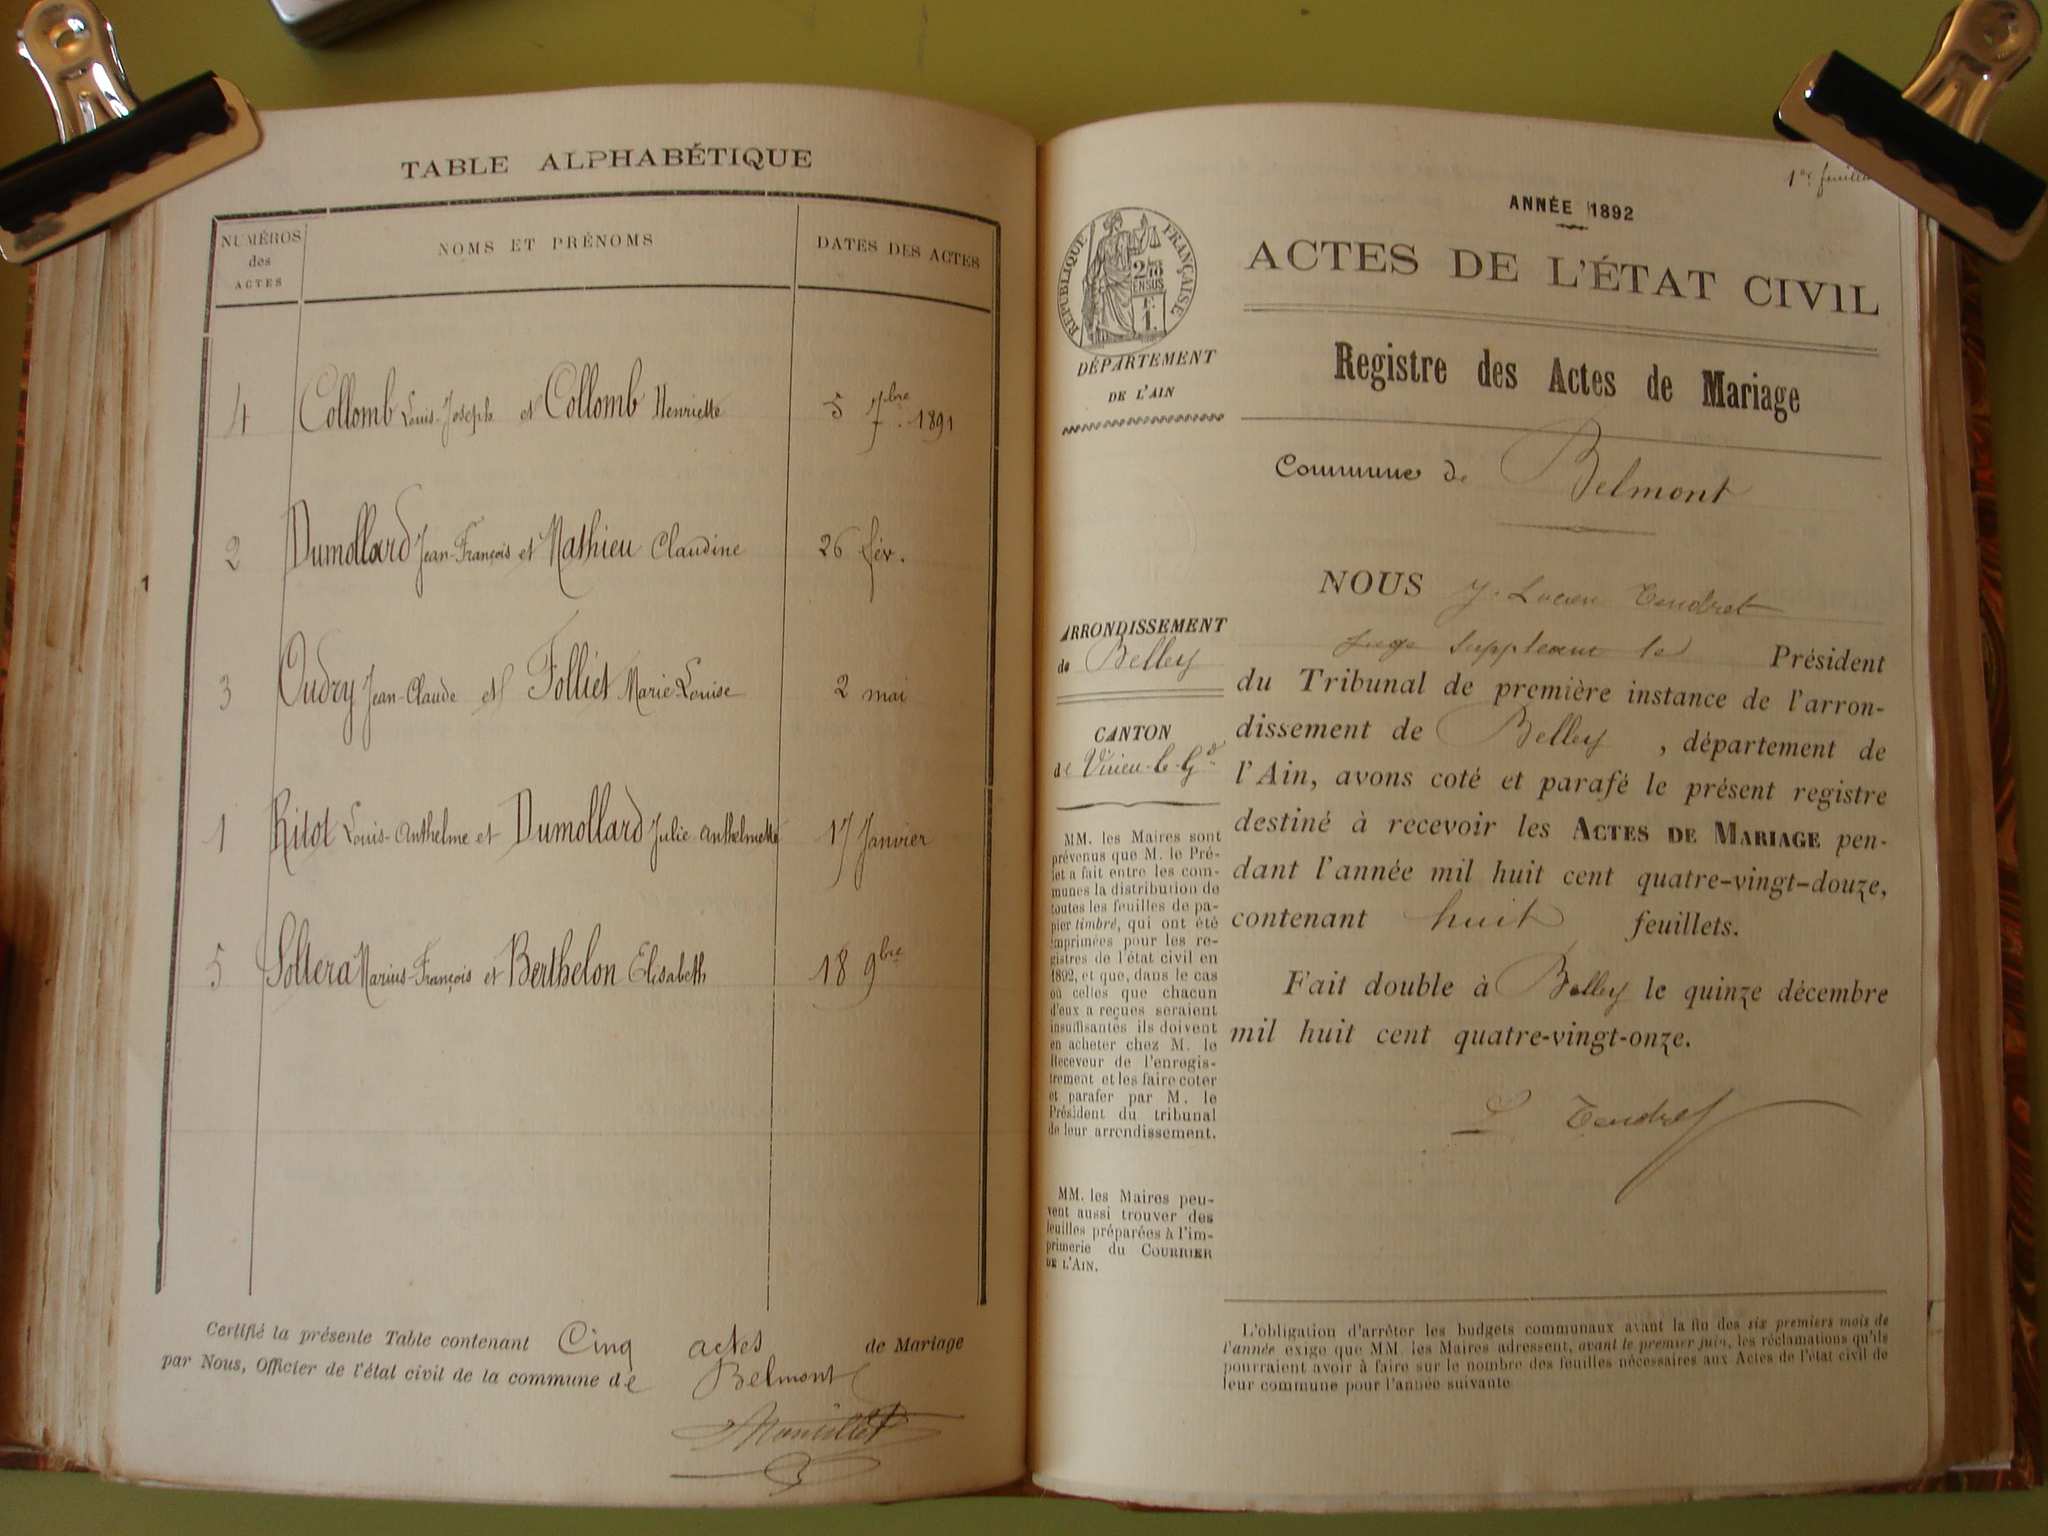 TABLE ALPHABÉTIQUE
NUMÉROS
des
ACTES
NOMS ET PRÉNOMS
DATES DES ACTES
4 Collomb Louis-Joseph et Collomb Henriette 5 7bre 1891
2 Dumollard Jean-François et Mathieu Claudine 26 fév.
3 Oudry Jean-Claude et Folliet Marie Louise 2 mai
1 Ritot Louis-Anthelme et Dumollard Julie Anthelmette 17 Janvier
5 Soltera Marius-François et Berthelon Elisabeth 18 9bre
1
Certifié la présente Table contenant Cinq actes de Mariage
par Nous, Officier de l'état civil de la commune de Belmont
1er feuillet
RÉPUBLIQUE FRANÇAISE
DÉPARTEMENT
DE L'AIN
ARRONDISSEMENT
de Belley
CANTON
de Virieu-le-Gd
MM. les Maires sont
prévenus que M. le Pré-
fet a fait entre les com-
munes la distribution de
toutes les feuilles de pa-
pier timbré, qui ont été
imprimées pour les re-
gistres de l'état civil en
1892, et que, dans le cas
où celles que chacun
d'eux a reçues seraient
insuffisantes ils doivent
en acheter chez M. le
Receveur de l'enregis-
trement et les faire coter
et parafer par M. le
Président du tribunal
de leur arrondissement.
MM. les Maires peu-
vent aussi trouver des
feuilles préparées à l'im-
primerie du COURRIER
DE L'AIN.
ANNÉE 1892
ACTES DE L'ÉTAT CIVIL
Registre des Actes de Mariage
Commune de Belmont
NOUS J. Lucien Tendret
Juge Suppléant le Président
du Tribunal de première instance de l'arron-
dissement de Belley, département de
l'Ain, avons coté et parafé le présent registre
destiné à recevoir les ACTES DE MARIAGE pen-
dant l'année mil huit cent quatre-vingt-douze,
contenant huit feuillets.
Fait double à Belley le quinze décembre
mil huit cent quatre-vingt-onze.
L Tendret
L'obligation d'arrêter les budgets communaux avant la fin des six premiers mois de
l'année exige que MM. les Maires adressent, avant le premier juin, les réclamations qu'ils
pourraient avoir à faire sur le nombre des feuilles nécessaires aux Actes de l'état civil de
leur commune pour l'année suivante